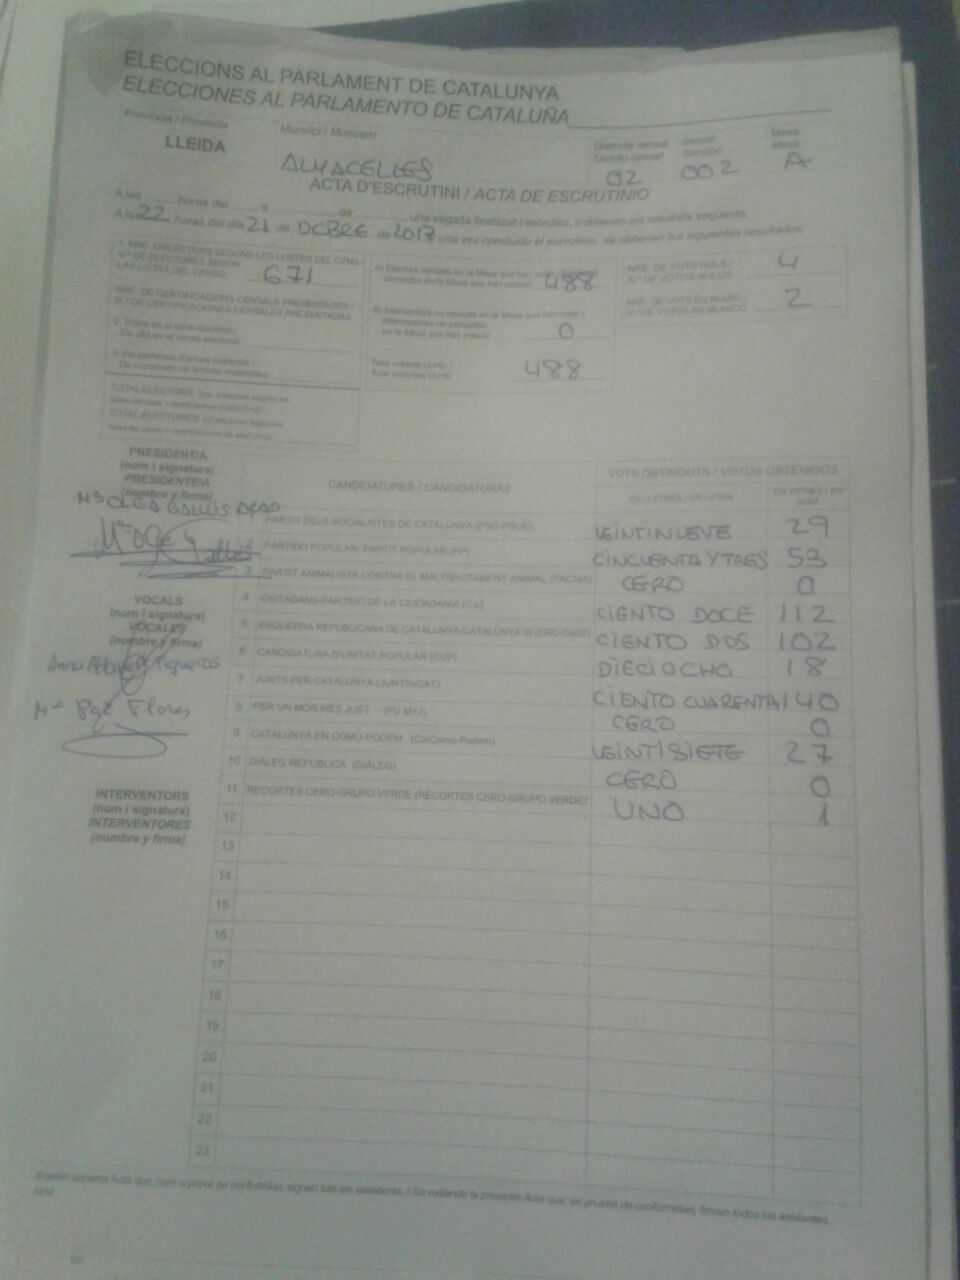 ELECCIONS AL PARLAMENT DE CATALUNYA
ELECCIONES AL PARLAMENTO DE CATALUÑA
Provincia / Provincia
Municipi / Municipio
Districte censal
Distrito censal
Secció
Sección
Mesa
Mesa
LLEIDA
ALMACELLES
02
002
A
ACTA D'ESCRUTINI / ACTA DE ESCRUTINIO
A les hores del d de , una vegada finalitzat l'escrutini, s'obtenen els resultats següents:
A las 22 horas del día 21 de DCBRE de 2017 una vez concluido el escrutinio, se obtienen los siguientes resultados:
1. NRE. D'ELECTORS SEGONS LES LLISTES DEL CENS /
N.º DE ELECTORES SEGÚN
LAS LISTAS DEL CENSO
671
NRE. DE CERTIFICACIONS CENSALS PRESENTADES /
N.º DE CERTIFICACIONES CENSALES PRESENTADAS
2. D'alta en el cens electoral /
De alta en el censo electoral:
3. De correcció d'errors materials /
De corrección de errores materiales:
TOTAL ELECTORS:
TOTAL ELECTORES:
A) Electors censats en la Mesa que han votat /
censados en la Mesa que han votado
488
B) Interventors no censats en la Mesa que han votat /
Interventores no censados
en la Mesa que han votado
0
Total votants (A+B) /
Total votantes (A+B)
488
NRE. DE VOTS NULS /
N.º DE VOTOS NULOS
4
NRE. DE VOTS EN BLANC /
N.º DE VOTOS EN BLANCO
2
PRESIDENT/A
(nom i signatura)
PRESIDENTE/A
(nombre y firma)
Mª OLGA
VOCALS
(nom i signatura)
VOCALES
(nombre y firma)
Anna Piqueras
Mª Paz Flores
INTERVENTORS
(nom i signatura)
INTERVENTORES
(nombre y firma)
CANDIDATURES / CANDIDATURAS
VOTS OBTINGUTS / VOTOS OBTENIDOS
EN LLETRES / EN LETRA
EN XIFRES / EN NÚM.
1 PARTIT DELS SOCIALISTES DE CATALUNYA (PSC-PSOE) VEINTINUEVE 29
2 PARTIDO POPULAR/ PARTIT POPULAR (PP) CINCUENTA Y TRES 53
3 PARTIT ANIMALISTA CONTRA EL MALTRACTAMENT ANIMAL (PACMA) CERO 0
4 CIUTADANS-PARTIDO DE LA CIUDADANÍA (C's) CIENTO DOCE 112
5 ESQUERRA REPUBLICANA DE CATALUNYA-CATALUNYA SÍ (ERC-CatSí) CIENTO DOS 102
6 CANDIDATURA D'UNITAT POPULAR (CUP) DIECIOCHO 18
7 JUNTS PER CATALUNYA (JUNTSxCAT) CIENTO CUARENTA 140
8 PER UN MÓN MÉS JUST (PUM+J) CERO 0
9 CATALUNYA EN COMÚ-PODEM (CatComú-Podem) VEINTISIETE 27
10 DIÀLEG REPUBLICÀ (DIÀLEG) CERO 0
11 RECORTES CERO-GRUPO VERDE (RECORTES CERO-GRUPO VERDE) UNO 1
12
13
14
15
16
17
18
19
20
21
22
23
S'estén aquesta Acta que, com a prova de conformitat, signen tots els assistents. / Se extiende la presente Acta que, en prueba de conformidad, firman todos los asistentes.